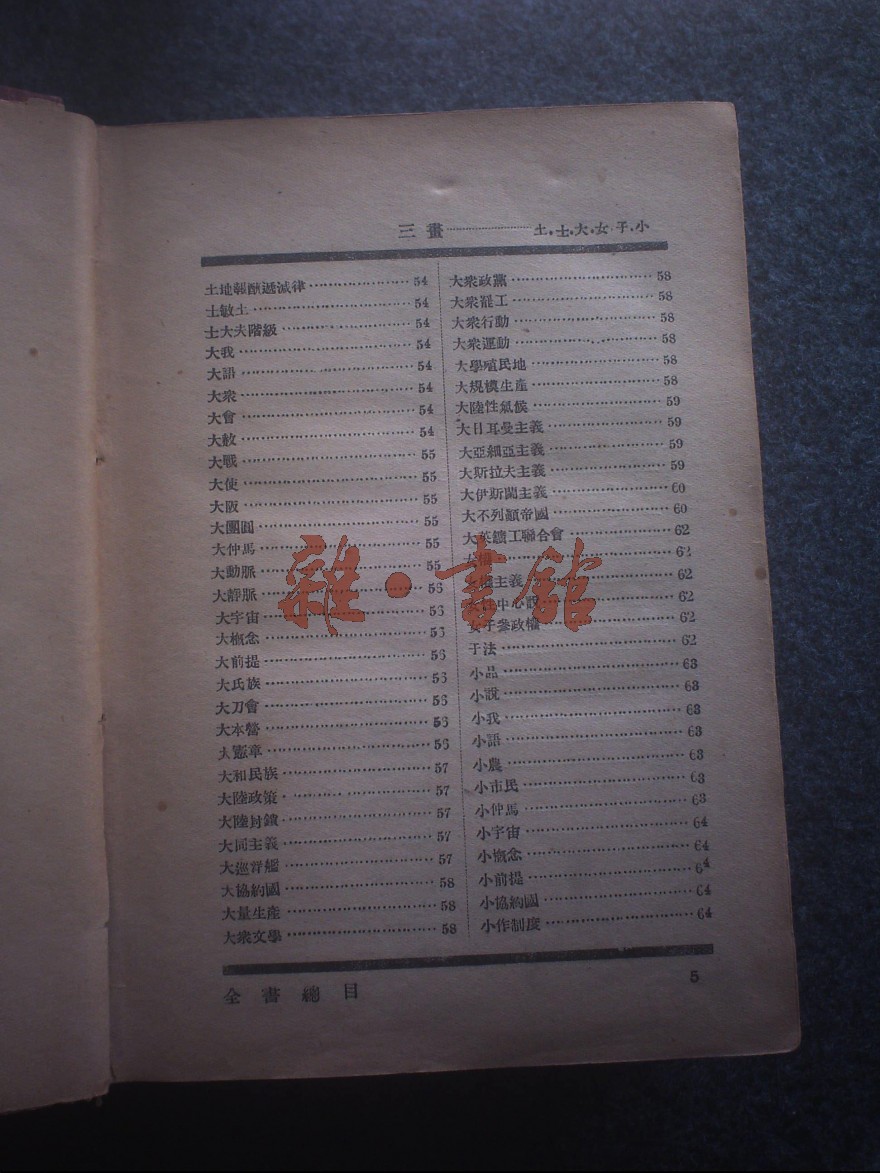 三畫………………土.士.大.女.子.小
土地報酬遞減律………………54
士敏土………………54
士大夫階級………………54
大我………………54
大語………………54
大衆………………54
大會………………54
大赦………………54
大戰………………55
大使………………55
大阪………………55
大團圓………………55
大仲馬………………55
大動脈………………55
大靜脈………………56
大宇宙………………56
大概念………………56
大前提………………56
大氏族………………56
大刀會………………56
大本營………………56
大憲章………………56
大和民族………………57
大陸政策………………57
大陸封鎖………………57
大同主義………………57
大巡洋艦………………57
大協約國………………58
大量生產………………58
大衆文學………………58
大衆政黨………………58
大衆罷工………………58
大衆行動………………58
大衆運動………………58
大學殖民地………………58
大規模生產………………58
大陸性氣候………………59
大日耳曼主義………………59
大亞細亞主義………………59
大斯拉夫主義………………59
大伊斯蘭主義………………60
大不列顛帝國………………60
大英鑛工聯合會………………62
女權………………62
女權主義………………62
女性中心說………………62
女子參政權………………62
子法………………62
小品………………63
小說………………63
小我………………63
小語………………63
小農………………63
小市民………………63
小仲馬………………63
小宇宙………………64
小概念………………64
小前提………………64
小協約國………………64
小作制度………………64
全書總目
5
雜·書館